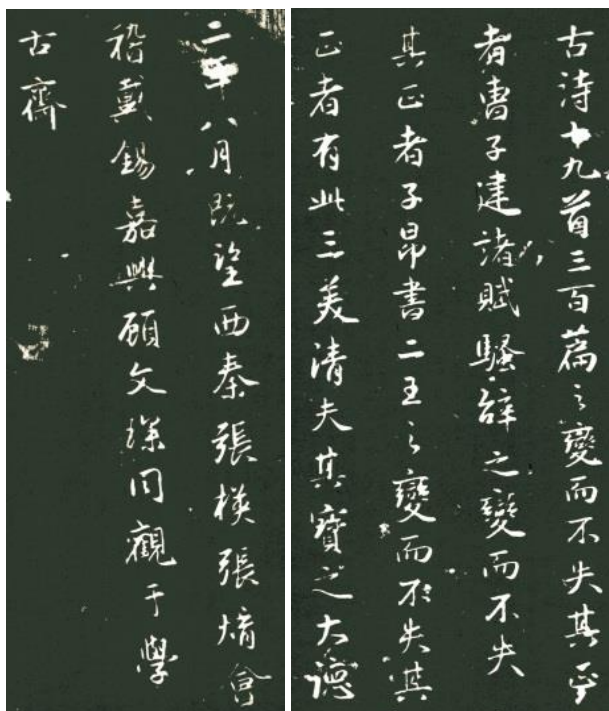 古诗十九首三百篇之變而不失其正
者曹子建諸賦騷辞之變而不失
其正者子昂書二王之變而不失其
正者有此三美清夫其寶之大德
二年八月既望西秦張模張焴會
稽戴錫嘉興顧文琛同觀于學
古齋